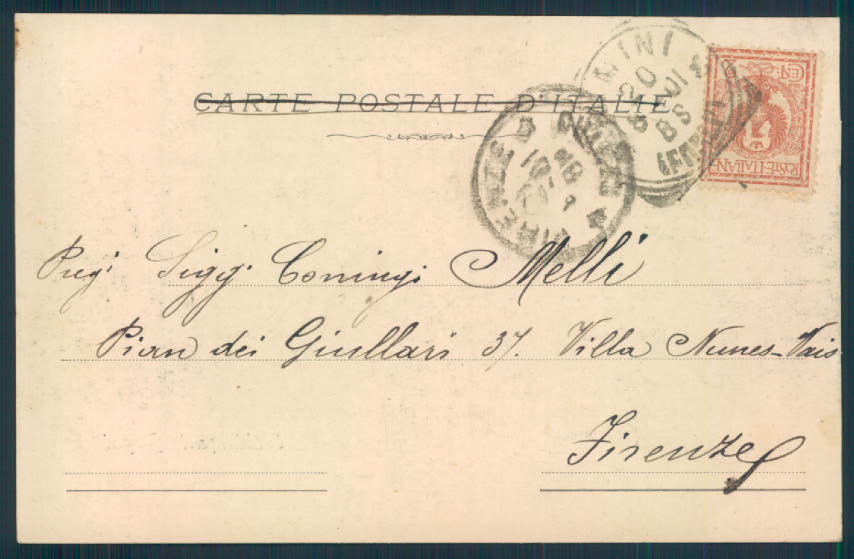 CARTE POSTALE D'ITALIE
CEN. 2
POSTE·ITALIANE
FIRENZE
Preg. Sigg. Coniugi Melli
Pian dei Giullari 37. Villa Nunes-Vais
Firenze